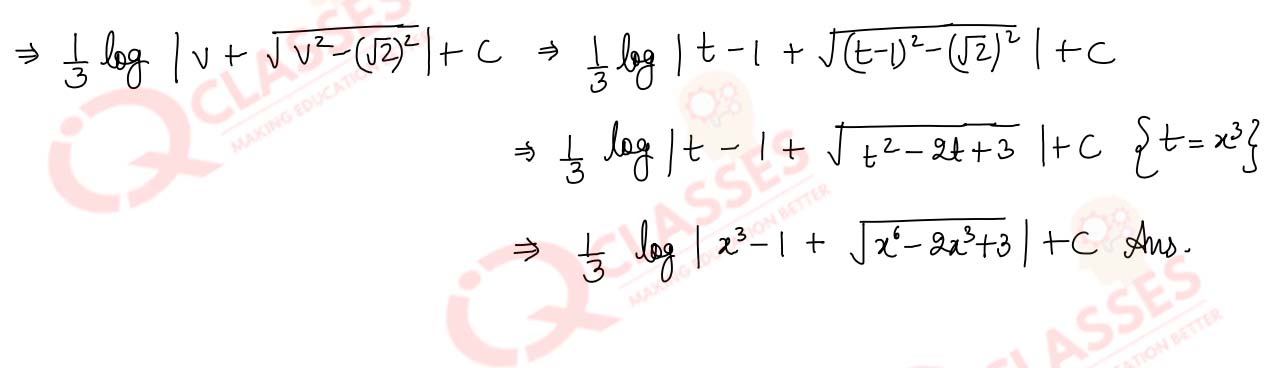 ⇒ 1/3 log |v + √(v² - (√2)²)| + C ⇒ 1/3 log |t - 1 + √((t-1)² - (√2)²)| + C
⇒ 1/3 log |t - 1 + √(t² - 2t + 3)| + C {t = x³}
⇒ 1/3 log |x³ - 1 + √(x⁶ - 2x³ + 3)| + C Ans.
CLASSES
MAKING EDUCATION
CLASSES
MAKING EDUCATION BETTER
CLASSES
CATION BETTER